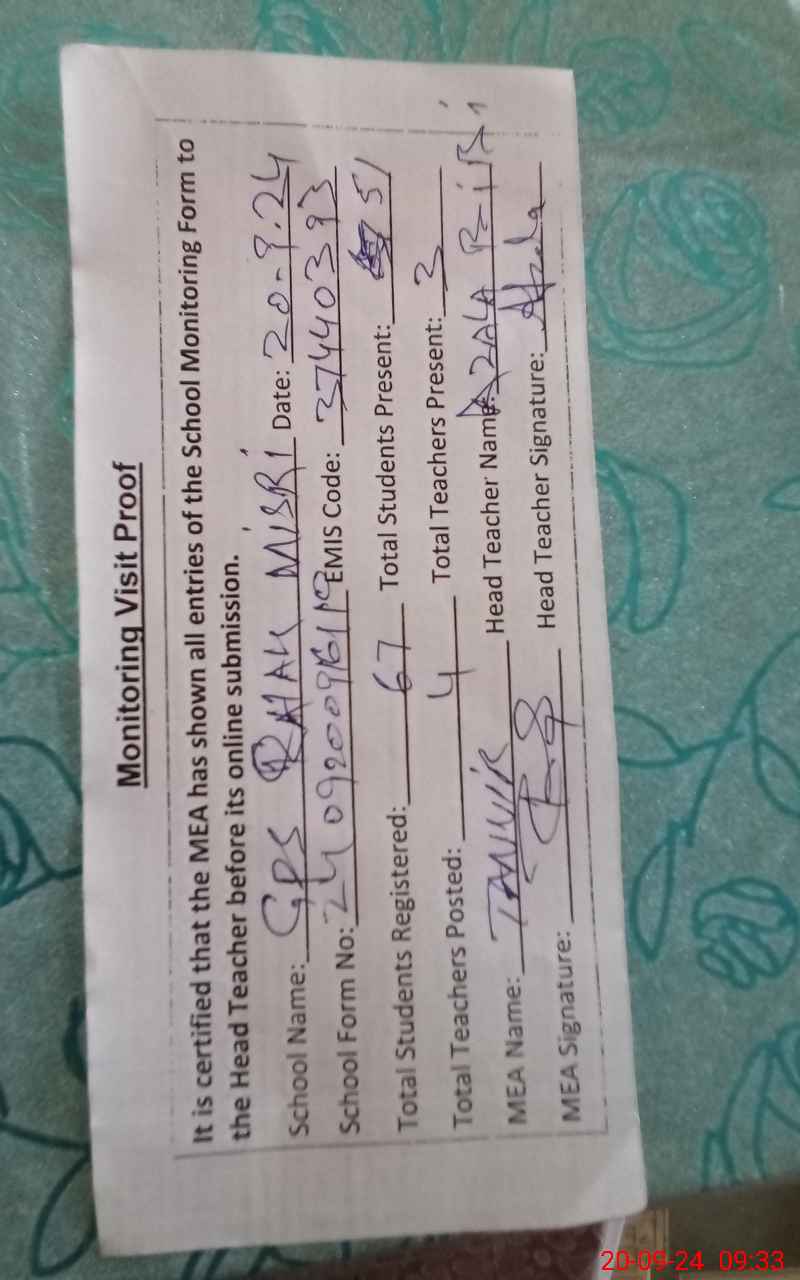 Monitoring Visit Proof
It is certified that the MEA has shown all entries of the School Monitoring Form to
the Head Teacher before its online submission.
School Name: GPS MISRI Date: 20-9.24
School Form No: EMIS Code: 37440393
Total Students Registered: 67 Total Students Present: 51
Total Teachers Posted: 4 Total Teachers Present: 3
MEA Name: TANVIR Head Teacher Name:
MEA Signature: Head Teacher Signature:
20-09-24 09:33